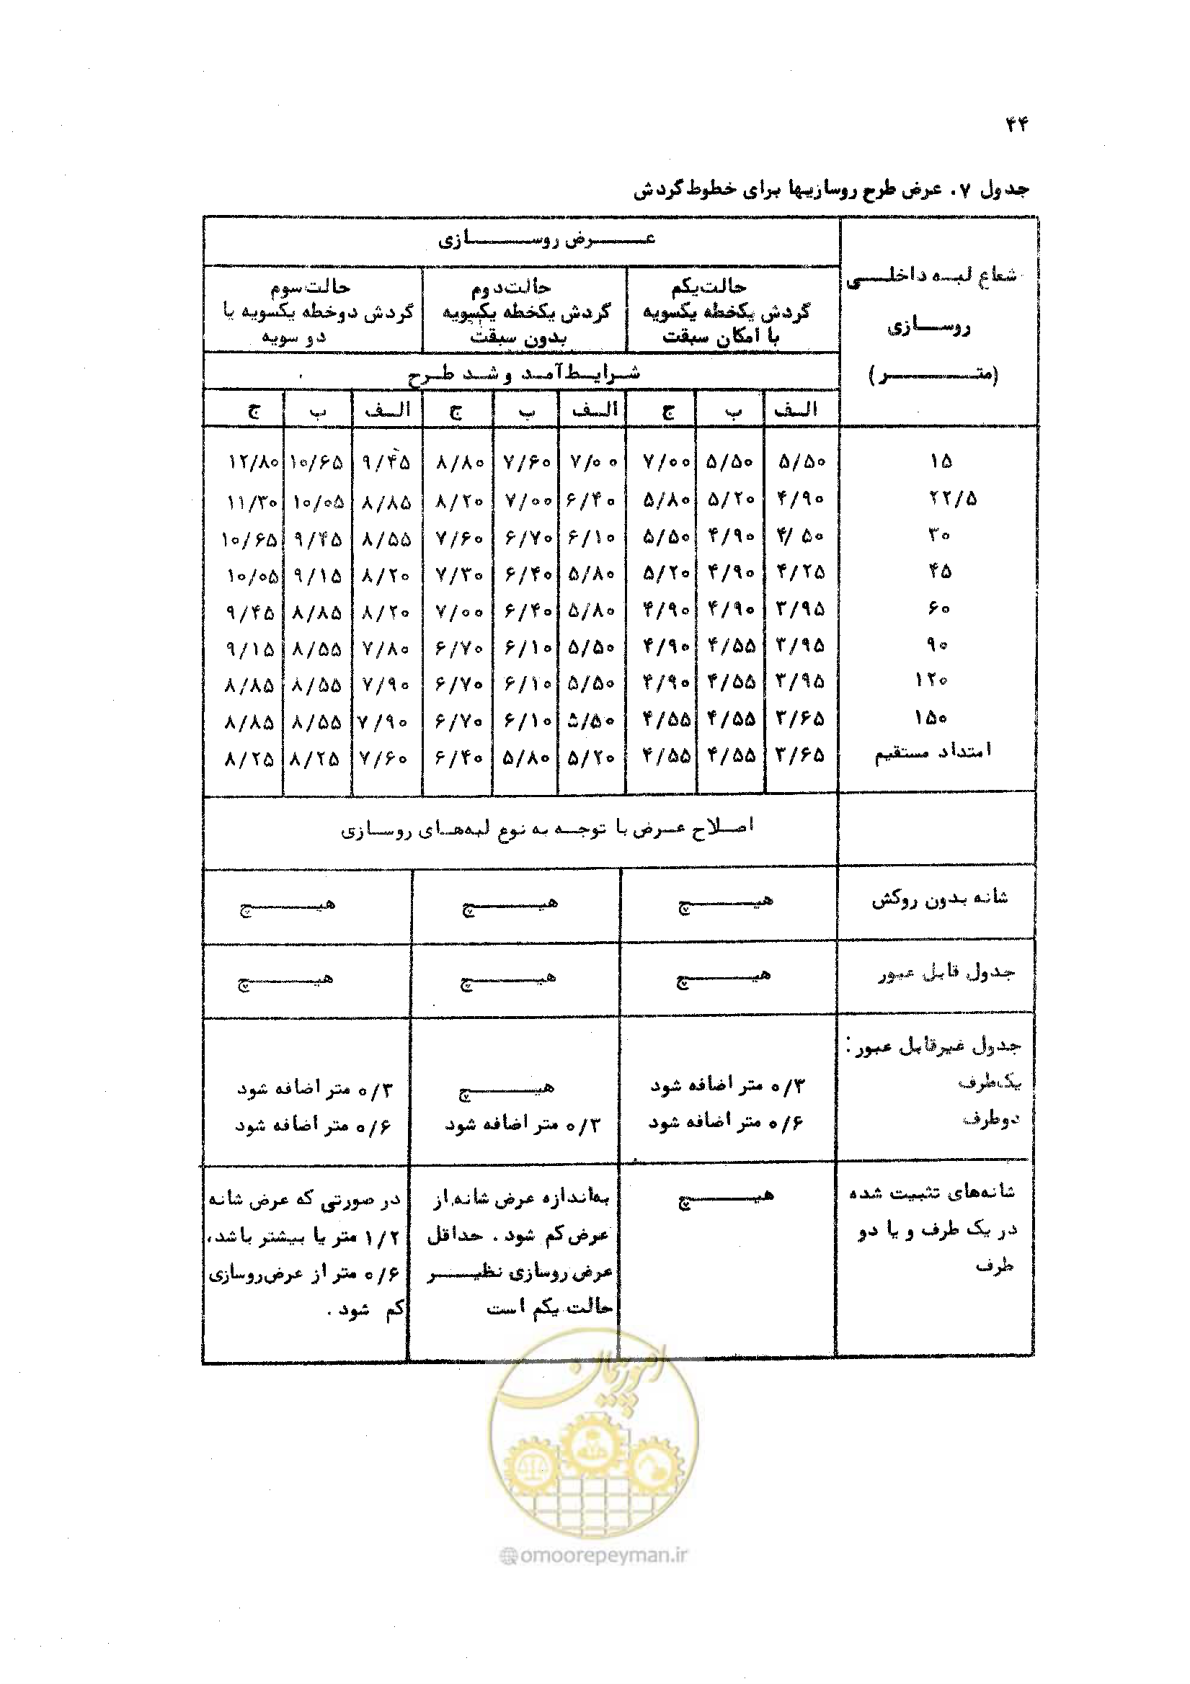 ۴۴
جدول ۷. عرض طرح روسازیها برای خطوط گردش
شعاع لبه داخلی
روسازی
(متر)
عرض روسازی
حالت یکم
گردش یکخطه یکسویه
با امکان سبقت
حالت دوم
گردش یکخطه یکسویه
بدون سبقت
حالت سوم
گردش دوخطه یکسویه یا
دو سویه
شرایط آمد و شد طرح
الف ب ج الف ب ج الف ب ج
۱۵ ۵/۵۰ ۵/۵۰ ۷/۰۰ ۷/۰۰ ۷/۶۰ ۸/۸۰ ۹/۴۵ ۱۰/۶۵ ۱۲/۸۰
۲۲/۵ ۴/۹۰ ۵/۲۰ ۵/۸۰ ۶/۴۰ ۷/۰۰ ۸/۲۰ ۸/۸۵ ۱۰/۰۵ ۱۱/۳۰
۳۰ ۴/۵۰ ۴/۹۰ ۵/۵۰ ۶/۱۰ ۶/۷۰ ۷/۶۰ ۸/۵۵ ۹/۴۵ ۱۰/۶۵
۴۵ ۴/۲۵ ۴/۹۰ ۵/۲۰ ۵/۸۰ ۶/۴۰ ۷/۳۰ ۸/۲۰ ۹/۱۵ ۱۰/۰۵
۶۰ ۳/۹۵ ۴/۹۰ ۴/۹۰ ۵/۸۰ ۶/۴۰ ۷/۰۰ ۸/۲۰ ۸/۸۵ ۹/۴۵
۹۰ ۳/۹۵ ۴/۵۵ ۴/۹۰ ۵/۵۰ ۶/۱۰ ۶/۷۰ ۷/۸۰ ۸/۵۵ ۹/۱۵
۱۲۰ ۳/۹۵ ۴/۵۵ ۴/۹۰ ۵/۵۰ ۶/۱۰ ۶/۷۰ ۷/۹۰ ۸/۵۵ ۸/۸۵
۱۵۰ ۳/۶۵ ۴/۵۵ ۴/۵۵ ۵/۵۰ ۶/۱۰ ۶/۷۰ ۷/۹۰ ۸/۵۵ ۸/۸۵
امتداد مستقیم ۳/۶۵ ۴/۵۵ ۴/۵۵ ۵/۲۰ ۵/۸۰ ۶/۴۰ ۷/۶۰ ۸/۲۵ ۸/۲۵
اصلاح عرض با توجه به نوع لبه‌های روسازی
شانه بدون روکش هیچ هیچ هیچ
جدول قابل عبور هیچ هیچ هیچ
جدول غیرقابل عبور:
یک‌طرف ۰/۳ متر اضافه شود هیچ ۰/۳ متر اضافه شود
دوطرف ۰/۶ متر اضافه شود ۰/۳ متر اضافه شود ۰/۶ متر اضافه شود
شانه‌های تثبیت شده
در یک طرف و یا دو
طرف
هیچ
به‌اندازه عرض شانه از
عرض کم شود. حداقل
عرض روسازی نظیر
حالت یکم است
در صورتی که عرض شانه
۱/۲ متر یا بیشتر باشد،
۰/۶ متر از عرض روسازی
کم شود.
امور پیمان
@omoorepeyman.ir